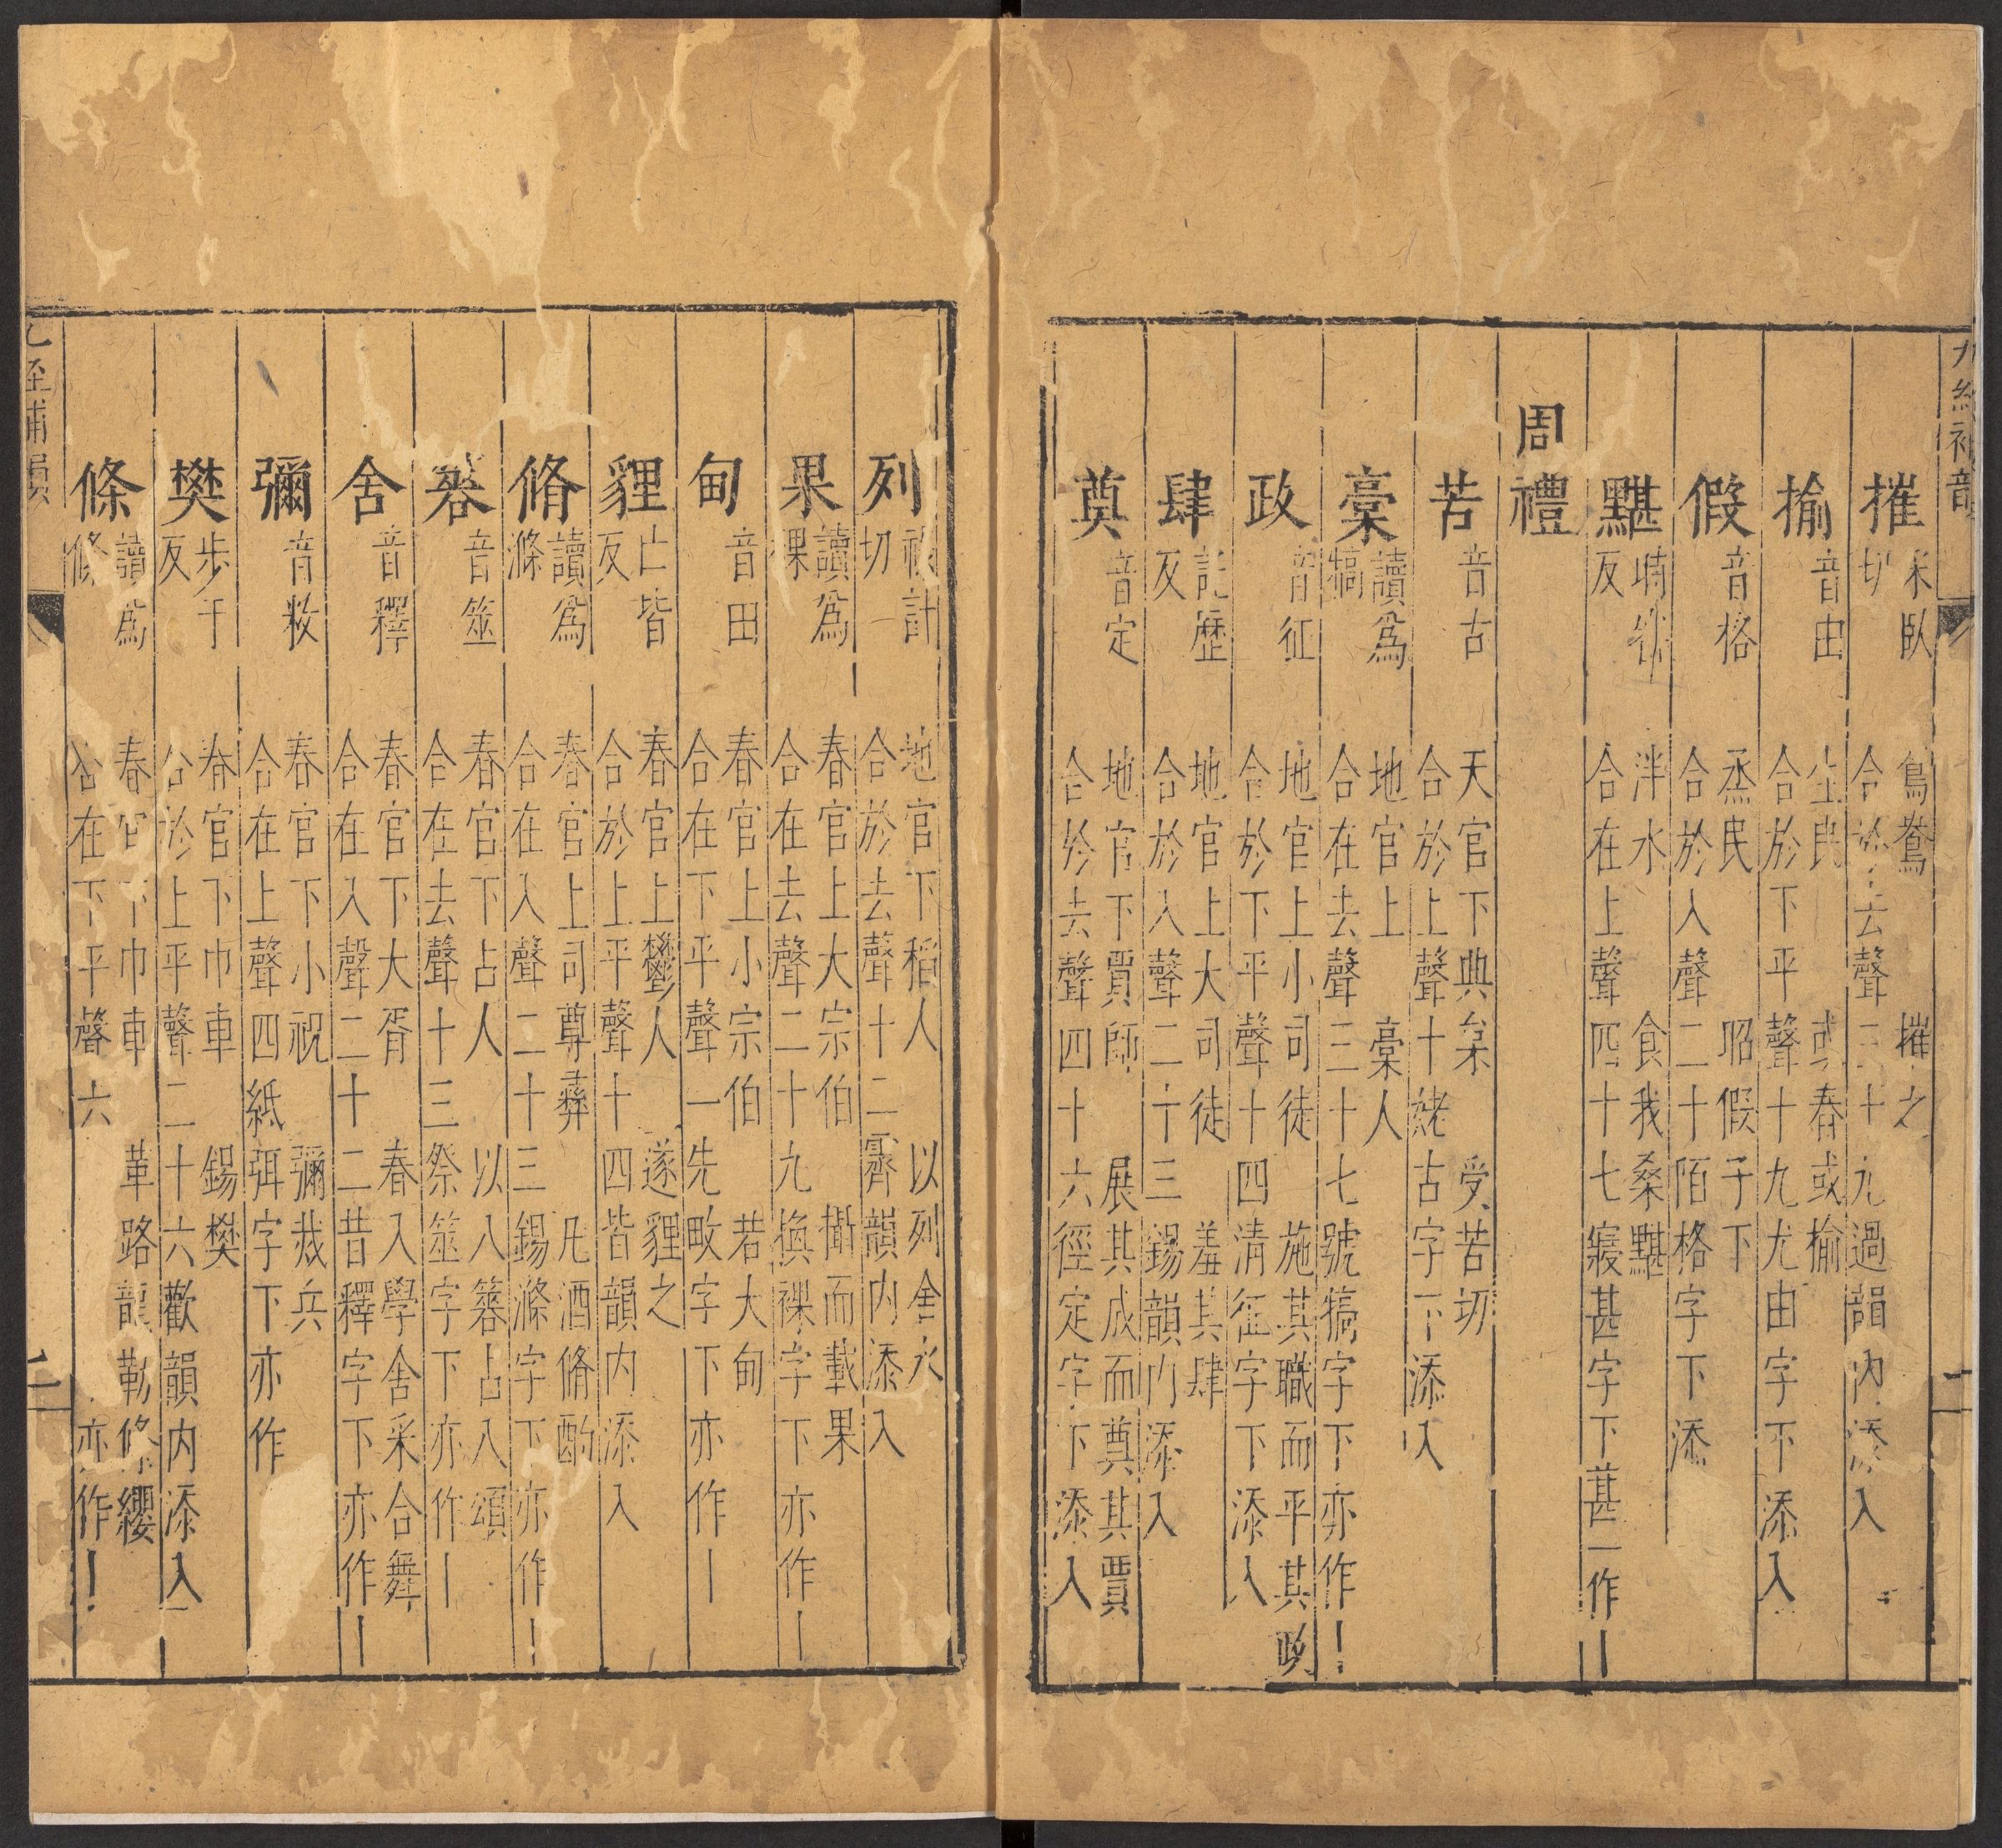 九經補韻
摧 采臥切 鴛鴦 摧之
合於去聲三十九過韻內添入
揄 音由 生民 或舂或揄
合於下平聲十九尤由字下添入
假 音格 烝民 昭假于下
合於入聲二十陌格字下添
黮 反 泮水 食我桑黮
合在上聲四十七寑甚字下葚一作丨
周禮
苦 音古 天官下典枲 受苦切
合於上聲十姥古字下添入
槀 讀爲犒 地官上 槀人
合在去聲三十七號犒字下亦作丨
政 音征 地官上小司徒 施其職而平其政
合於下平聲十四清征字下添入
肆 託歷反 地官上大司徒 羞其肆
合於入聲二十三錫韻內添入
奠 音定 地官下賈師 展其成而奠其賈
合於去聲四十六徑定字下添入
列 計切 地官下稻人 以列舍水
合於去聲十二霽韻內添入
果 讀爲祼 春官上大宗伯 攝而載果
合在去聲二十九換祼字下亦作丨
甸 音田 春官上小宗伯 若大甸
合在下平聲一先畋字下亦作丨
貍 亡皆反 春官上鬱人 遂貍之
合於上平聲十四皆韻內添入
脩 讀爲滌 春官上司尊彝 凡酒脩酌
合在入聲二十三錫滌字下亦作丨
簭 音筮 春官下占人 以八簭占八頌
合在去聲十三祭筮字下亦作丨
舍 音釋 春官下大胥 春入學舍采合舞
合在入聲二十二昔釋字下亦作丨
彌 音敉 春官下小祝 彌烖兵
合在上聲四紙弭字下亦作
樊 步干反 春官下巾車 錫樊
合於上平聲二十六歡韻內添入
條 讀爲絛 春官下巾車 革路龍勒條纓
合在下平聲六 亦作丨
九經補韻
二